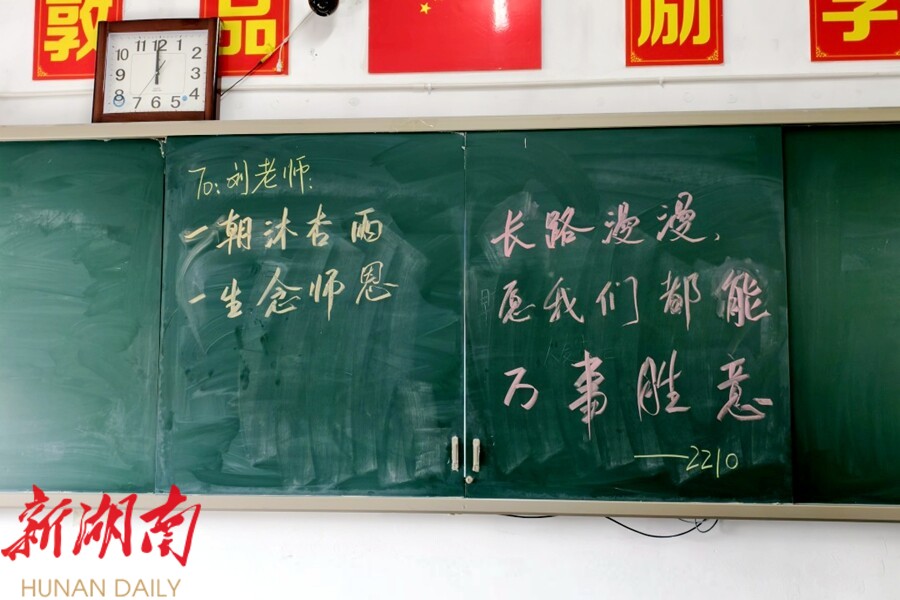 敦
品
励
学
11 12 1
10 2
9 3
8 4
7 6 5
To:刘老师:
一朝沐杏雨
一生念师恩
长路漫漫,
愿我们都能
万事胜意
——2210
新湖南
HUNAN DAILY